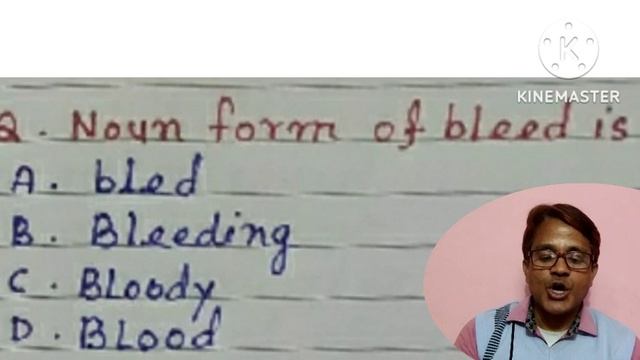 KINEMASTER
Q. Noun form of bleed is
A. bled
B. Bleeding
C. Bloody
D. Blood